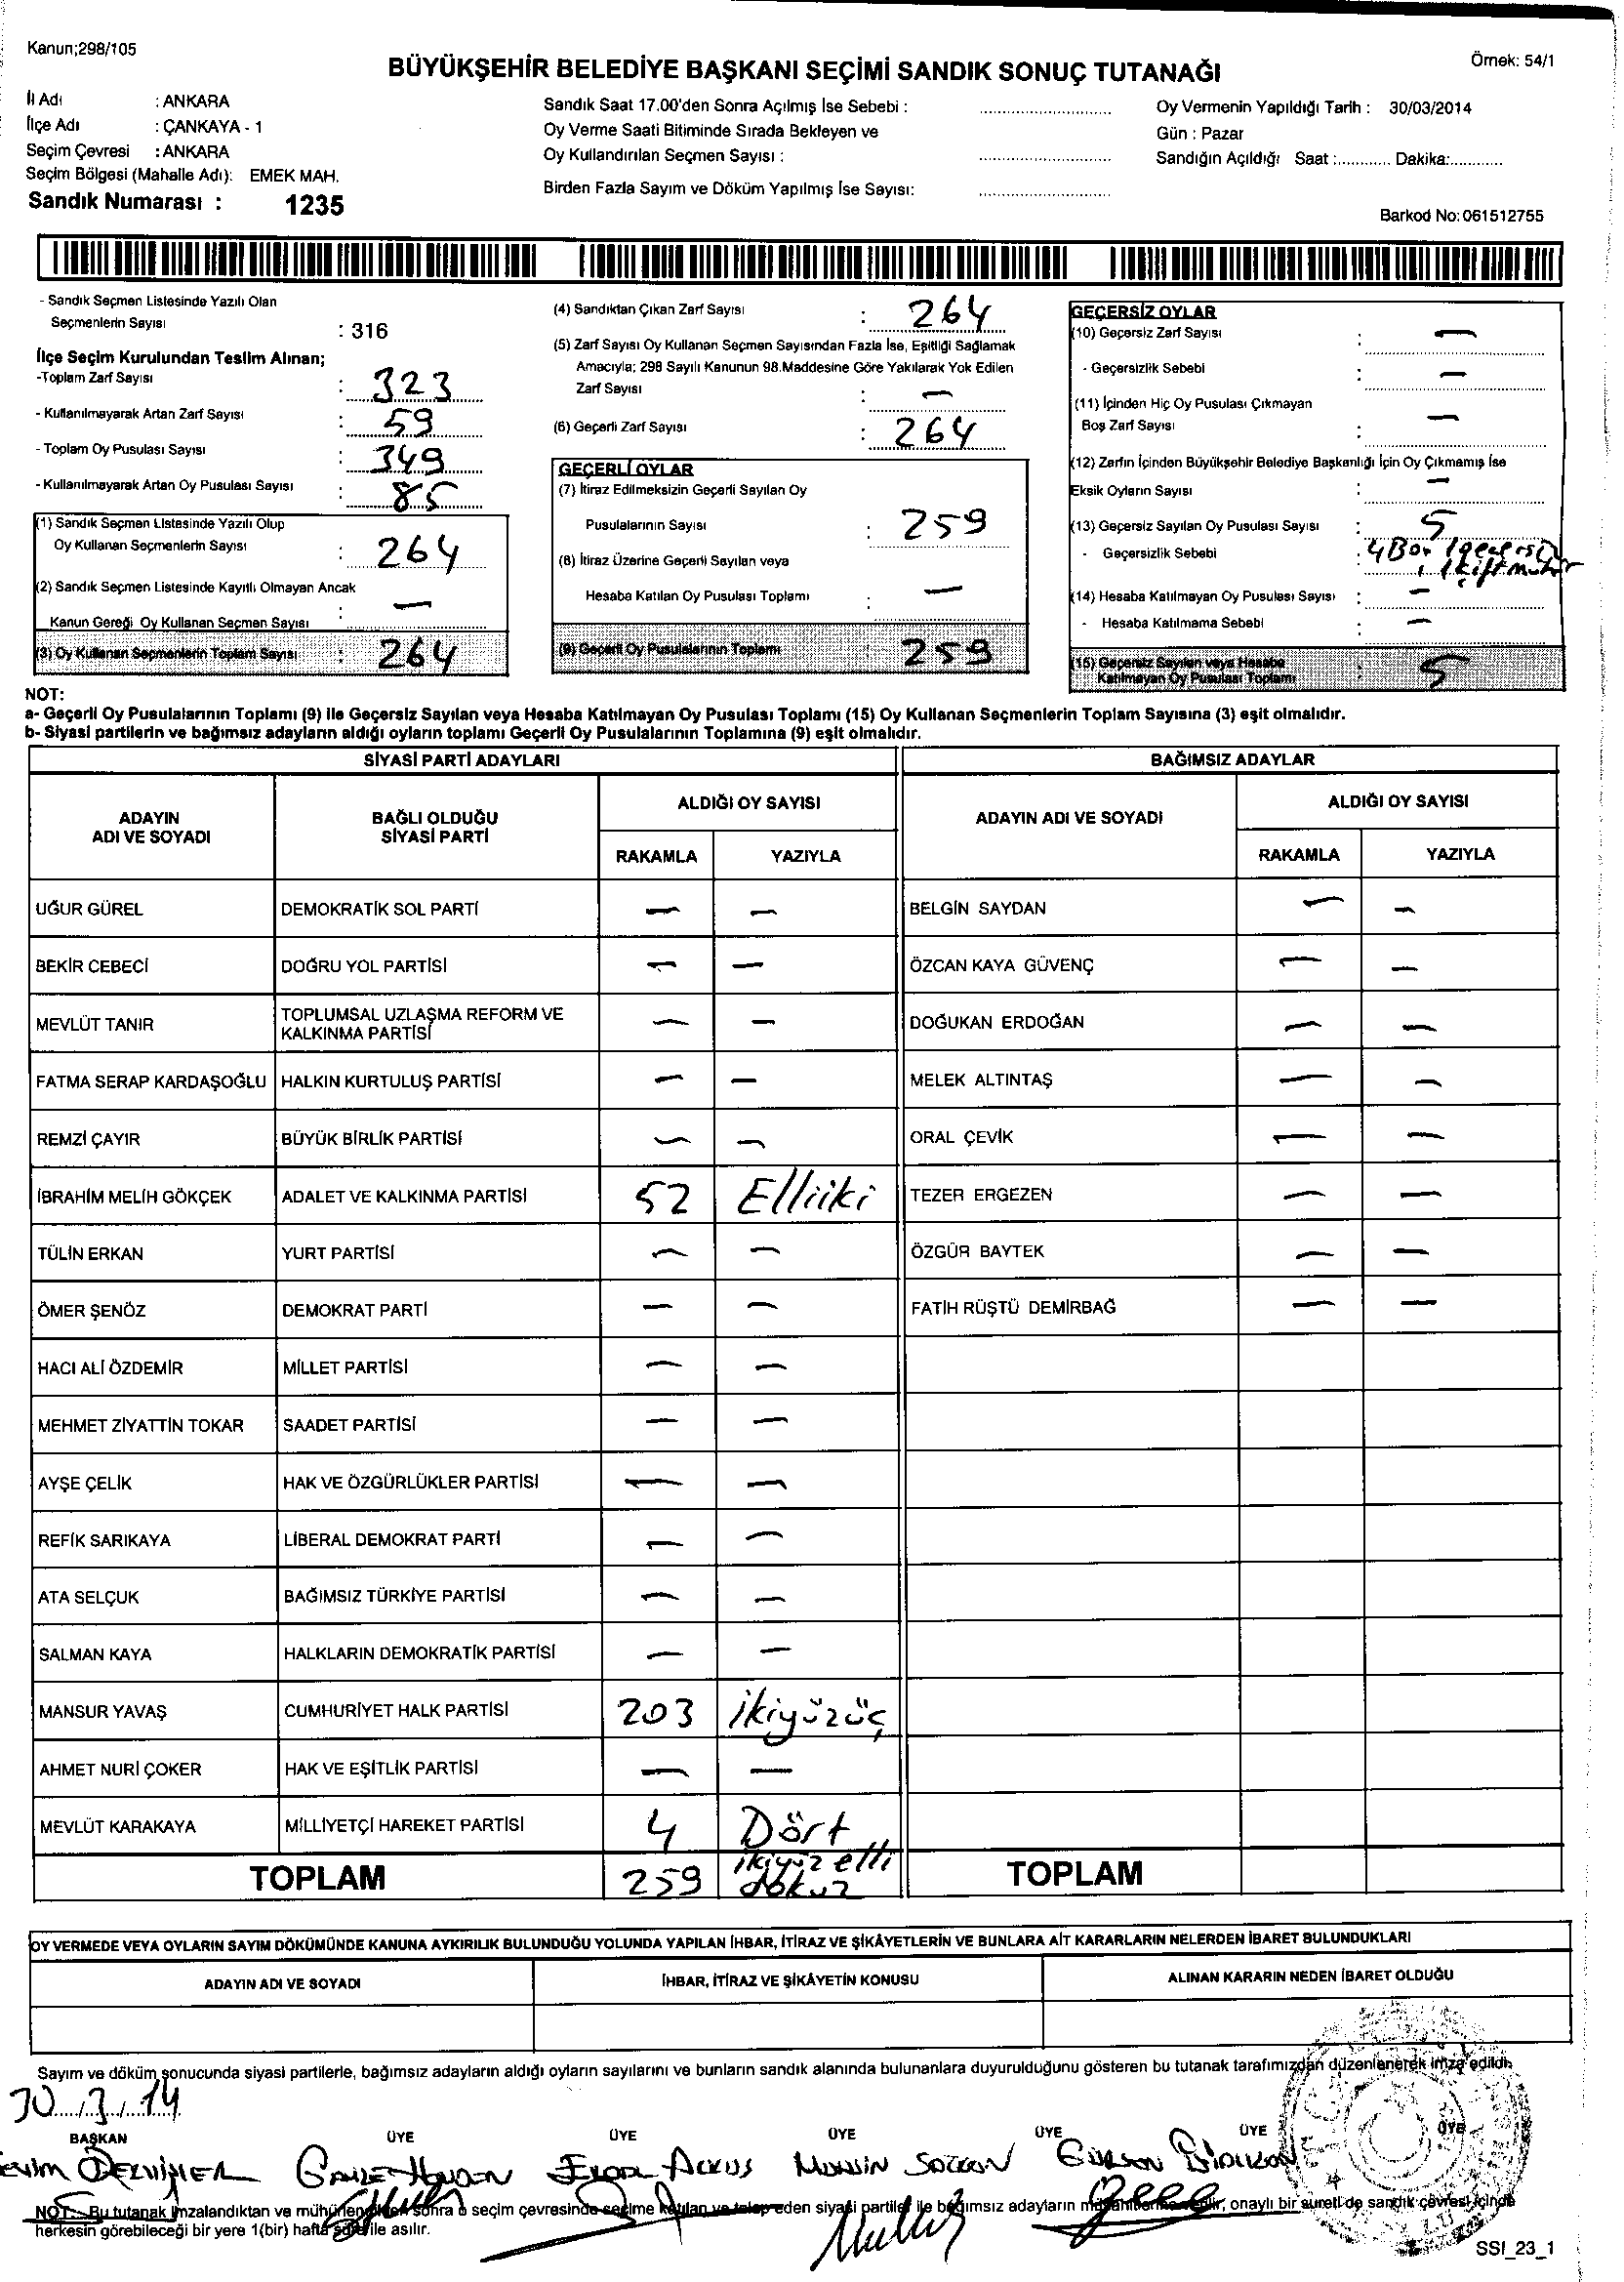 Kanun;298/105
Örnek: 54/1
BÜYÜKŞEHİR BELEDİYE BAŞKANI SEÇİMİ SANDIK SONUÇ TUTANAĞI
İl Adı : ANKARA
İlçe Adı : ÇANKAYA - 1
Seçim Çevresi : ANKARA
Seçim Bölgesi (Mahalle Adı): EMEK MAH.
Sandık Numarası : 1235
Sandık Saat 17.00'den Sonra Açılmış İse Sebebi : ............
Oy Verme Saati Bitiminde Sırada Bekleyen ve
Oy Kullandırılan Seçmen Sayısı : ............
Birden Fazla Sayım ve Döküm Yapılmış İse Sayısı: ............
Oy Vermenin Yapıldığı Tarih : 30/03/2014
Gün : Pazar
Sandığın Açıldığı Saat :............ Dakika:............
Barkod No: 061512755
- Sandık Seçmen Listesinde Yazılı Olan
Seçmenlerin Sayısı : 316
İlçe Seçim Kurulundan Teslim Alınan;
-Toplam Zarf Sayısı : 323
- Kullanılmayarak Artan Zarf Sayısı : 59
- Toplam Oy Pusulası Sayısı : 349
- Kullanılmayarak Artan Oy Pusulası Sayısı : 85
(1) Sandık Seçmen Listesinde Yazılı Olup
Oy Kullanan Seçmenlerin Sayısı : 264
(2) Sandık Seçmen Listesinde Kayıtlı Olmayan Ancak
Kanun Gereği Oy Kullanan Seçmen Sayısı : —
(3) Oy Kullanan Seçmenlerin Toplam Sayısı : 264
(4) Sandıktan Çıkan Zarf Sayısı : 264
(5) Zarf Sayısı Oy Kullanan Seçmen Sayısından Fazla İse, Eşitliği Sağlamak
Amacıyla; 298 Sayılı Kanunun 98.Maddesine Göre Yakılarak Yok Edilen
Zarf Sayısı : —
(6) Geçerli Zarf Sayısı : 264
GEÇERLİ OYLAR
(7) İtiraz Edilmeksizin Geçerli Sayılan Oy
Pusulalarının Sayısı : 259
(8) İtiraz Üzerine Geçerli Sayılan veya
Hesaba Katılan Oy Pusulası Toplamı : —
(9) Geçerli Oy Pusulalarının Toplamı 259
GEÇERSİZ OYLAR
(10) Geçersiz Zarf Sayısı : —
- Geçersizlik Sebebi : —
(11) İçinden Hiç Oy Pusulası Çıkmayan
Boş Zarf Sayısı : —
(12) Zarfın İçinden Büyükşehir Belediye Başkanlığı İçin Oy Çıkmamış İse
Eksik Oyların Sayısı : —
(13) Geçersiz Sayılan Oy Pusulası Sayısı : 5
- Geçersizlik Sebebi : 4 Boş 1 geçersiz
(14) Hesaba Katılmayan Oy Pusulası Sayısı : —
- Hesaba Katılmama Sebebi : —
(15) Geçersiz Sayılan veya Hesaba
Katılmayan Oy Pusulası Toplamı : 5
NOT:
a- Geçerli Oy Pusulalarının Toplamı (9) ile Geçersiz Sayılan veya Hesaba Katılmayan Oy Pusulası Toplamı (15) Oy Kullanan Seçmenlerin Toplam Sayısına (3) eşit olmalıdır.
b- Siyasi partilerin ve bağımsız adayların aldığı oyların toplamı Geçerli Oy Pusulalarının Toplamına (9) eşit olmalıdır.
SİYASİ PARTİ ADAYLARI
BAĞIMSIZ ADAYLAR
ADAYIN
ADI VE SOYADI
BAĞLI OLDUĞU
SİYASİ PARTİ
ALDIĞI OY SAYISI
RAKAMLA YAZIYLA
ADAYIN ADI VE SOYADI
ALDIĞI OY SAYISI
RAKAMLA YAZIYLA
UĞUR GÜREL DEMOKRATİK SOL PARTİ — — BELGİN SAYDAN — —
BEKİR CEBECİ DOĞRU YOL PARTİSİ — — ÖZCAN KAYA GÜVENÇ — —
MEVLÜT TANIR TOPLUMSAL UZLAŞMA REFORM VE
KALKINMA PARTİSİ — — DOĞUKAN ERDOĞAN — —
FATMA SERAP KARDAŞOĞLU HALKIN KURTULUŞ PARTİSİ — — MELEK ALTINTAŞ — —
REMZİ ÇAYIR BÜYÜK BİRLİK PARTİSİ — — ORAL ÇEVİK — —
İBRAHİM MELİH GÖKÇEK ADALET VE KALKINMA PARTİSİ 52 Elliiki TEZER ERGEZEN — —
TÜLİN ERKAN YURT PARTİSİ — — ÖZGÜR BAYTEK — —
ÖMER ŞENÖZ DEMOKRAT PARTİ — — FATİH RÜŞTÜ DEMİRBAĞ — —
HACI ALİ ÖZDEMİR MİLLET PARTİSİ — —
MEHMET ZİYATTİN TOKAR SAADET PARTİSİ — —
AYŞE ÇELİK HAK VE ÖZGÜRLÜKLER PARTİSİ — —
REFİK SARIKAYA LİBERAL DEMOKRAT PARTİ — —
ATA SELÇUK BAĞIMSIZ TÜRKİYE PARTİSİ — —
SALMAN KAYA HALKLARIN DEMOKRATİK PARTİSİ — —
MANSUR YAVAŞ CUMHURİYET HALK PARTİSİ 203 ikiyüzüç
AHMET NURİ ÇOKER HAK VE EŞİTLİK PARTİSİ — —
MEVLÜT KARAKAYA MİLLİYETÇİ HAREKET PARTİSİ 4 Dört
TOPLAM 259 ikiyüz elli
dokuz
TOPLAM
OY VERMEDE VEYA OYLARIN SAYIM DÖKÜMÜNDE KANUNA AYKIRILIK BULUNDUĞU YOLUNDA YAPILAN İHBAR, İTİRAZ VE ŞİKÂYETLERİN VE BUNLARA AİT KARARLARIN NELERDEN İBARET BULUNDUKLARI
ADAYIN ADI VE SOYADI İHBAR, İTİRAZ VE ŞİKÂYETİN KONUSU ALINAN KARARIN NEDEN İBARET OLDUĞU
Sayım ve döküm sonucunda siyasi partilerle, bağımsız adayların aldığı oyların sayılarını ve bunların sandık alanında bulunanlara duyurulduğunu gösteren bu tutanak tarafımızdan düzenlenerek imza edildi.
30/3/14
BAŞKAN ÜYE ÜYE ÜYE ÜYE ÜYE ÜYE
NOT: Bu tutanak imzalandıktan ve mühürlendikten sonra o seçim çevresinde seçime katılan ve talep eden siyasi partiler ile bağımsız adayların müşahitlerine verilir, onaylı bir sureti de sandık çevresi içinde
herkesin görebileceği bir yere 1(bir) hafta süre ile asılır.
SSI_23_1